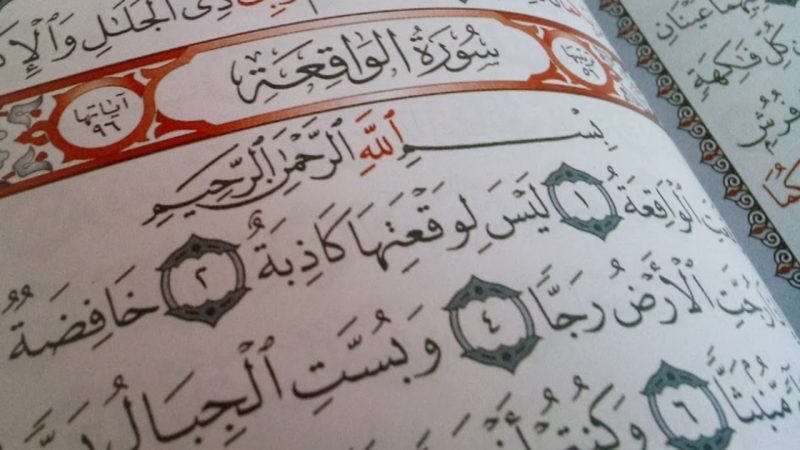 ذِى الْجَلَٰلِ وَالْإِكْ
سُورَةُ الْوَاقِعَةِ
آيَاتُهَا ٩٦
بِسْمِ اللَّهِ الرَّحْمَٰنِ الرَّحِيمِ
الْوَاقِعَةُ ١ لَيْسَ لِوَقْعَتِهَا كَاذِبَةٌ ٢ خَافِضَةٌ
رُجَّتِ الْأَرْضُ رَجًّا ٤ وَبُسَّتِ الْجِبَالُ
مُّنۢبَثًّا ٦ وَكُنتُمْ
عَيْنَانِ
كُلِّ فَٰكِهَةٍ
فُرُشٍ